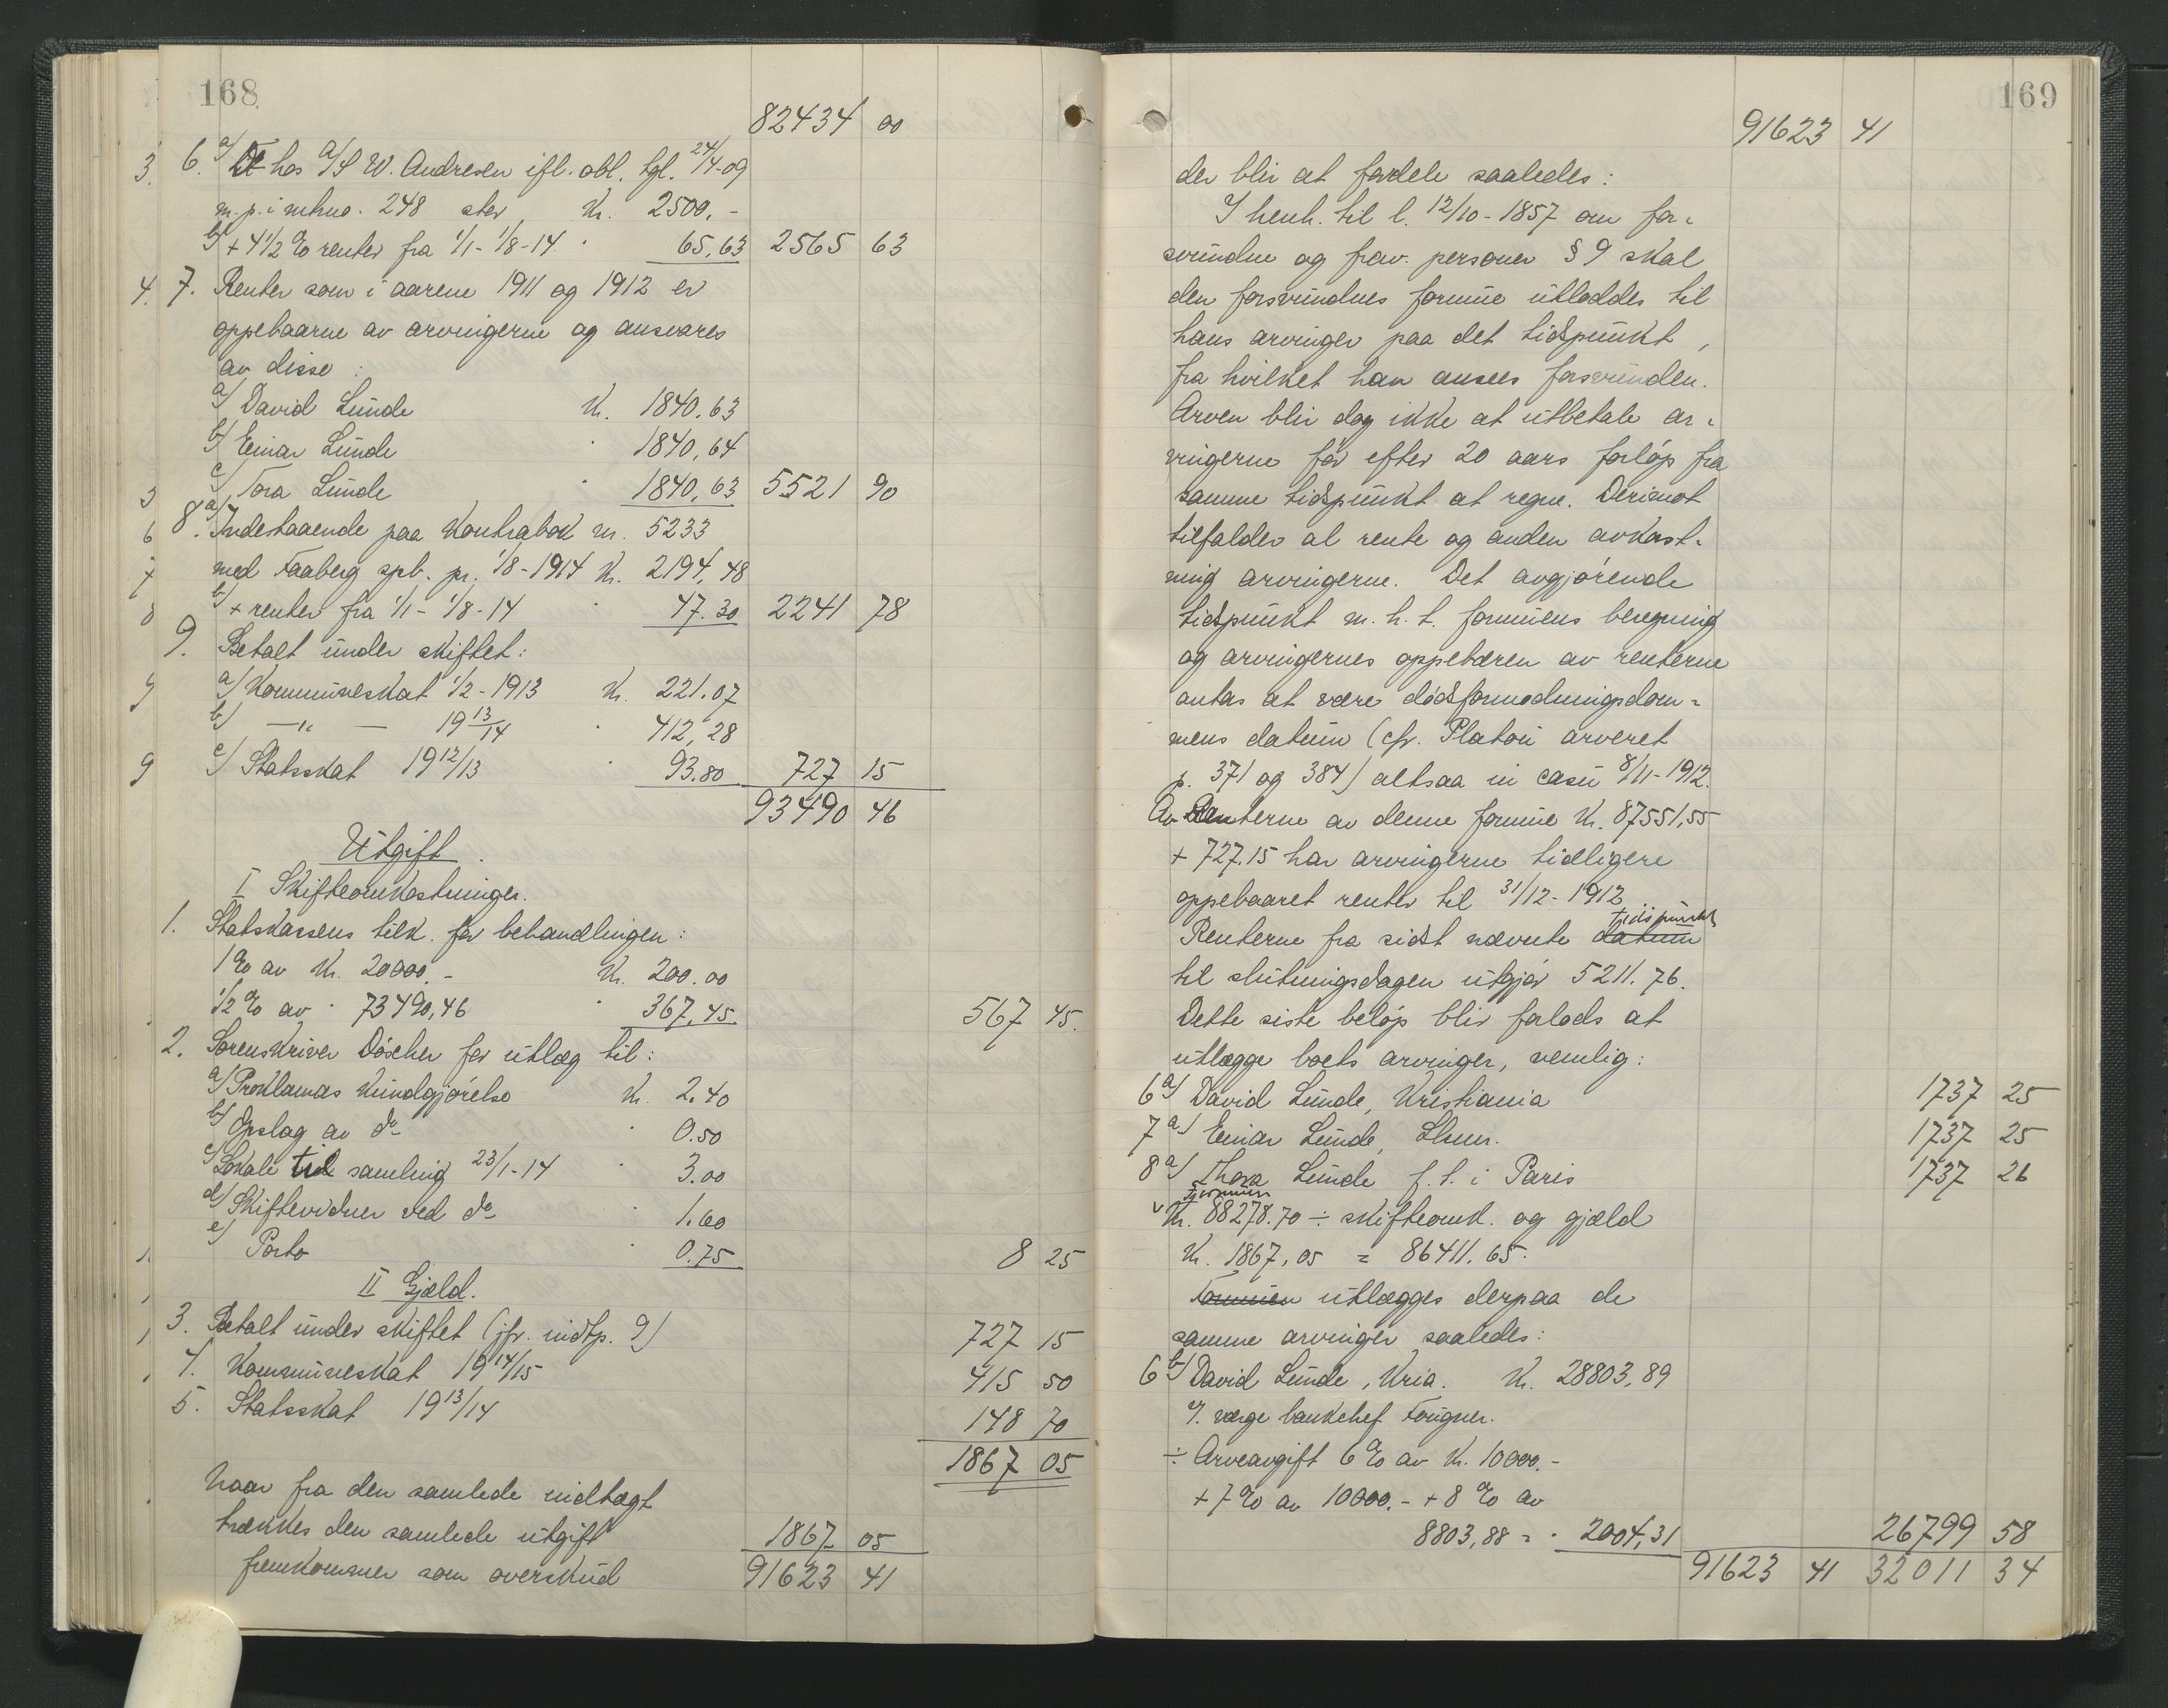 168
82434 00
3. 6. a) hos A/S W. Andresen ifl. obl. tgl. 24/4-09
m. p. i mtrno. 248 stor, Kr. 2500.-
b) + 4 1/2 % renter fra 1/1 - 1/8 - 14 " 65,63 2565 63
4. 7. Renter som i aarene 1911 og 1912 er
oppebaarne av arvingerne og ansvares
av disse:
a) David Lunde Kr. 1840,63
b) Einar Lunde " 1840,64
c) Tora Lunde " 1840,63 5521 90
8. a) Indestaaende paa Kontrabok nr. 5233
med Faaberg spb. pr. 1/8-1914 Kr. 2194,48
b) + renter fra 1/1 - 1/8 - 14 " 47.30 2241 78
9. Betalt under skiftet:
a) Kommuneskat 1/2 - 1913 Kr. 221.07
b) —"— 19 13/14 " 412,28
c) Statsskat 19 12/13 " 93.80 727 15
93490 46
Utgift.
I Skifteomkostninger.
1. Statskassens tilk. for behandlingen:
1 % av Kr. 20000.- Kr. 200.00
1/2 % av " 73490,46 " 367,45 567 45.
2. Sorenskriver Döscher for utlæg til:
a) Proklamas kundgjørelse Kr. 2.40
b) Opslag av do " 0.50
c) Lokale til samling 23/1-14 " 3.00
d) Skiftevidner ved do " 1.60
e) Porto " 0.75 8 25
II Gjæld.
3. Betalt under skiftet (jfr. indtp. 9) 727 15
4. Kommuneskat 19 14/15 415 50
5. Statsskat 19 13/14 148 70
1867 05
Naar fra den samlede indtægt
trækkes den samlede utgift 1867 05
fremkommer som overskud 91623 41
169
91623 41
der blir at fordele saaledes:
I henh. til l. 12/10 - 1857 om for-
svundne og frav. personer § 9 skal
den forsvundnes formue utloddes til
hans arvinger paa det tidspunkt,
fra hvilket han ansees forsvunden.
Arven blir dog ikke at utbetale ar-
vingerne før efter 20 aars forløp fra
samme tidspunkt at regne. Derimot
tilfalder al rente og anden avkast-
ning arvingerne. Det avgjørende
tidspunkt m. h. t. formuens beregning
og arvingernes oppebæren av renterne
antas at være dødsformodningsdom-
mens datum (cfr. Platou arveret
p. 371 og 384) altsaa in casu 8/11-1912.
Av Renterne av denne formue Kr. 87551,55
+ 727.15 har arvingerne tidligere
oppebaaret renter til 31/12 - 1912
Renterne fra sidst nævnte datum tidspunkt
til slutningsdagen utgjør 5211.76.
Dette siste beløp blir forlods at
utlægge boets arvinger, nemlig:
6 a) David Lunde, Kristiania 1737 25
7 a) Einar Lunde, Lhmr. 1737 25
8 a) Thora Lunde f. t. i Paris 1737 26
Formuen
Kr. 88278.70 ÷ skifteomk. og gjæld
Kr. 1867,05 = 86411.65.
Formuen utlægges derpaa de
samme arvinger saaledes:
6 b) David Lunde, Kria. Kr. 28803,89
v. værge bankchef Fougner.
÷ Arveavgift 6 % av Kr. 10000.-
+ 7 % av 10000.- + 8 % av
8803,88 = " 2004,31 26799 58
91623 41 32011 34